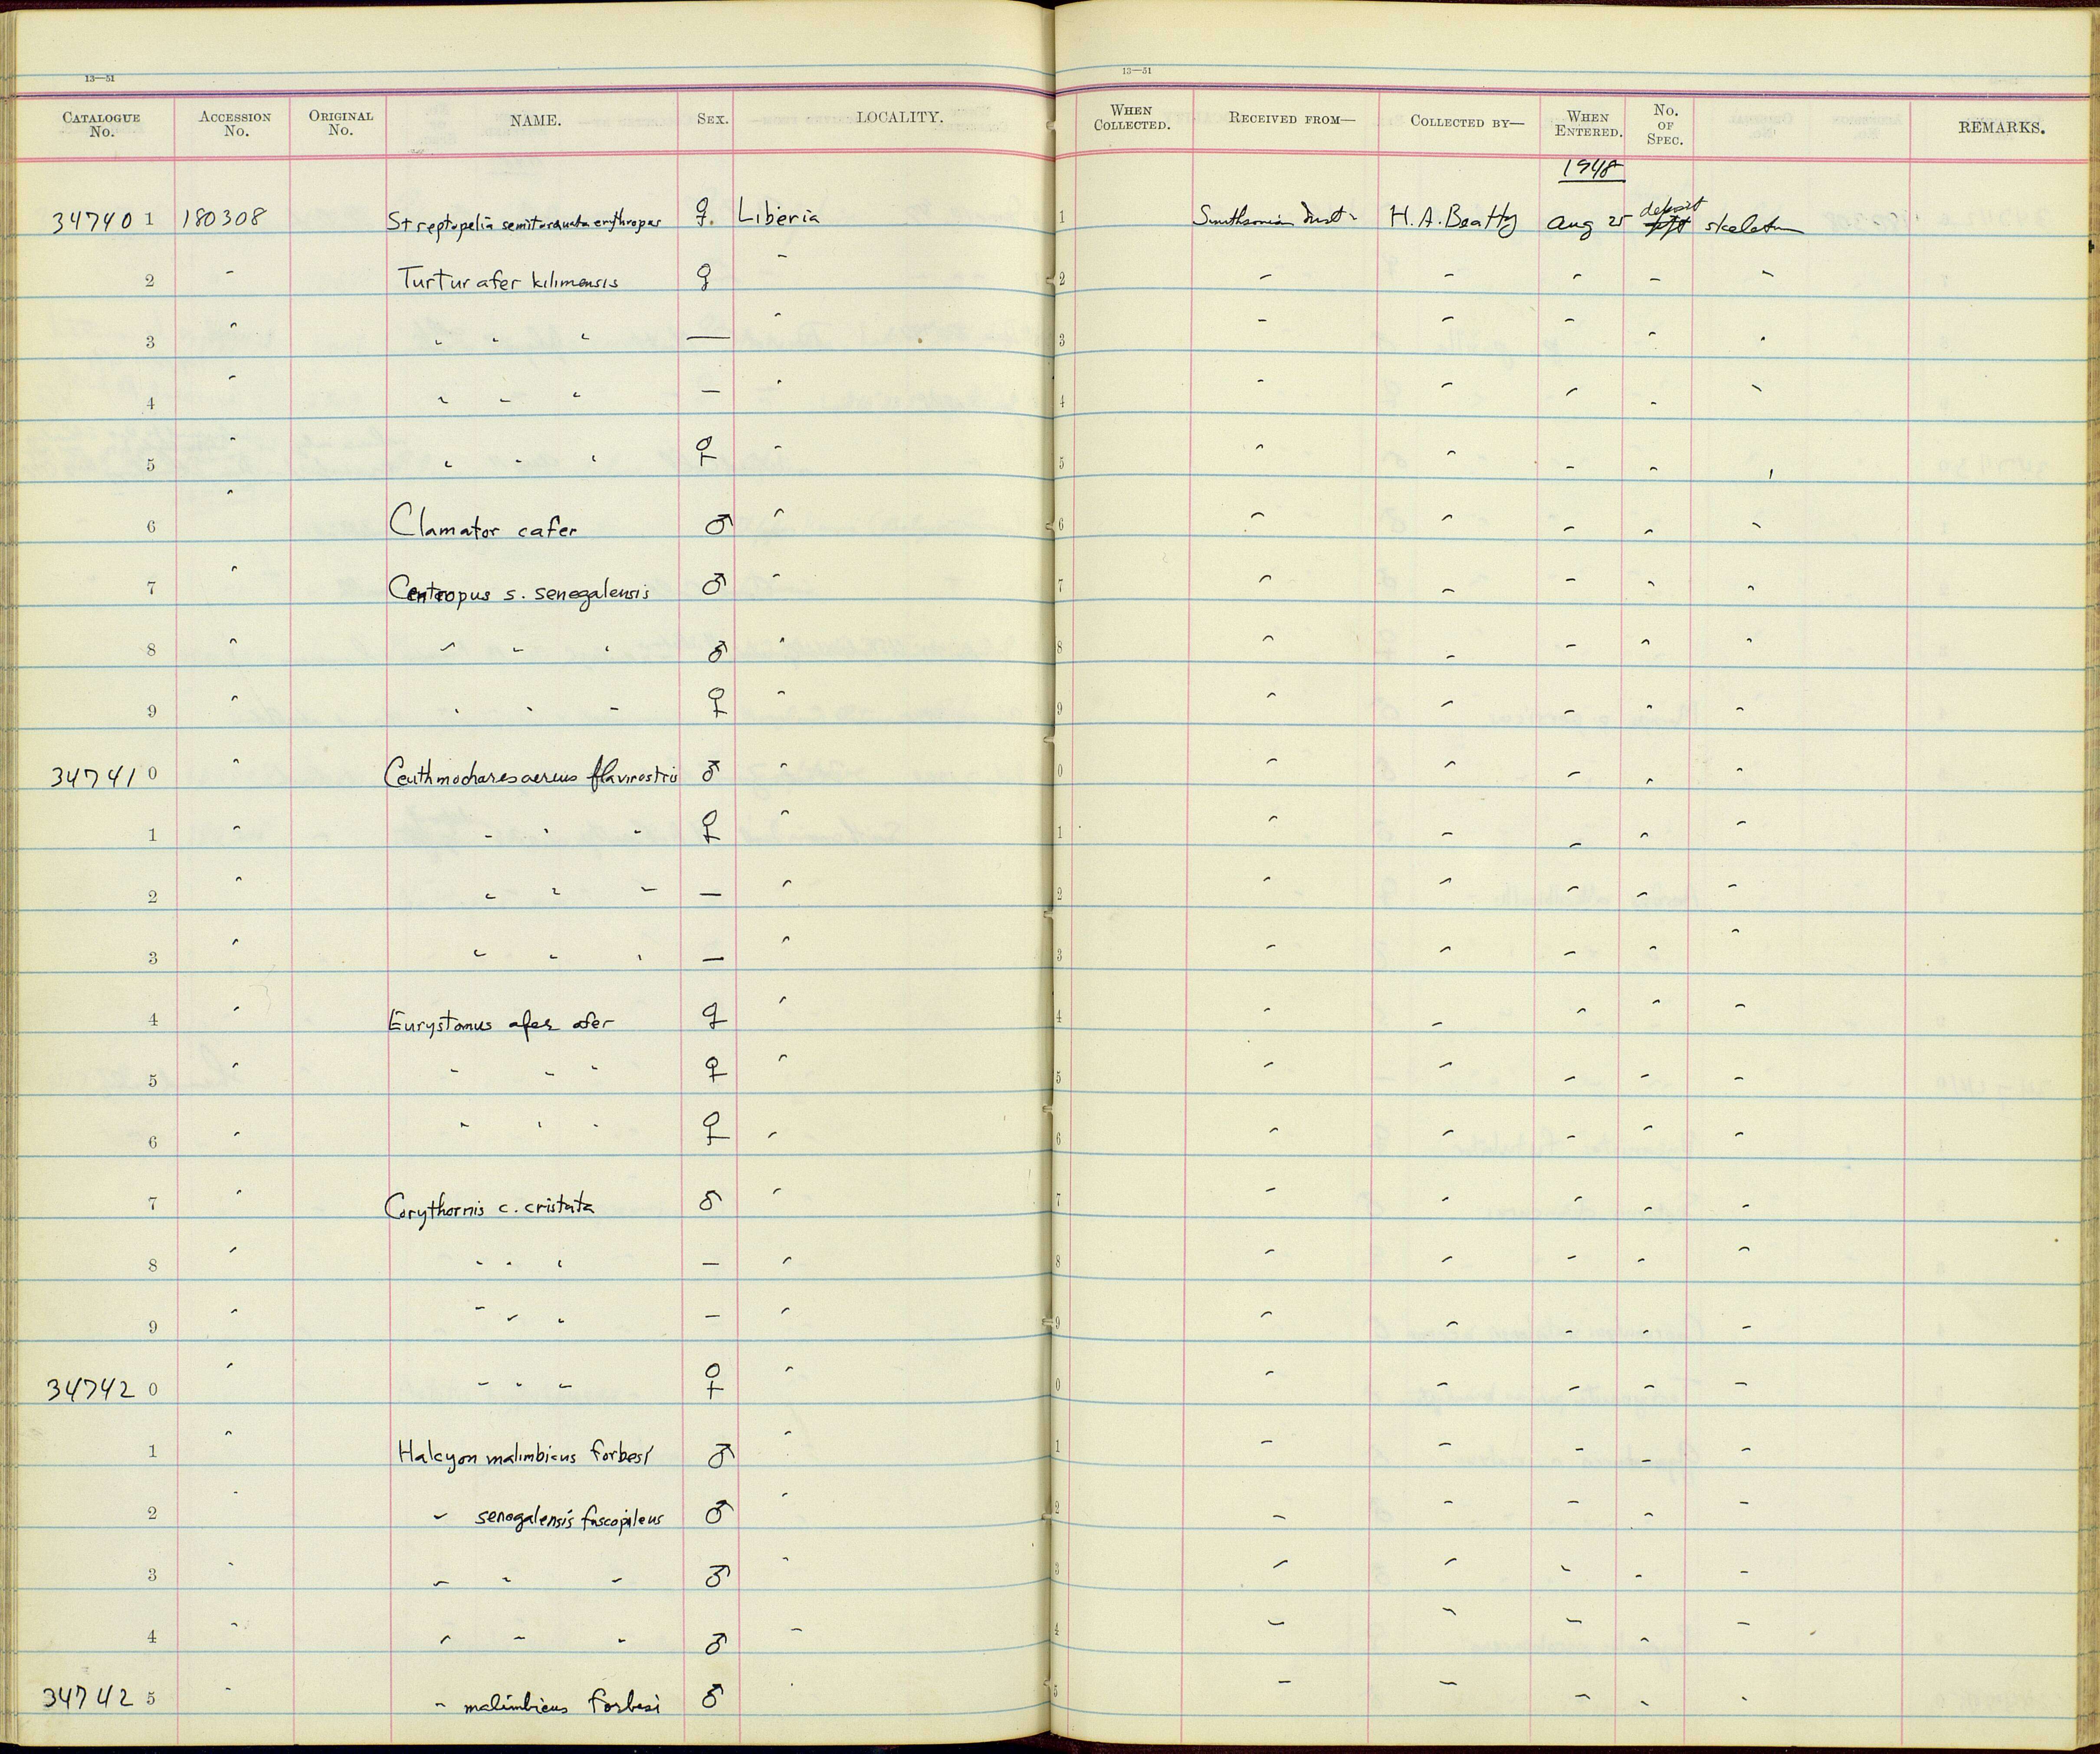 13—51 13—51
CATALOGUE No. ACCESSION No. ORIGINAL No. NAME. SEX. LOCALITY. WHEN COLLECTED. RECEIVED FROM— COLLECTED BY— WHEN ENTERED. No. OF SPEC. REMARKS.
1948
34740 1 180308 Streptopelia semitorquata erythrops ♀. Liberia 1 Smithsonian Inst. H. A. Beatty Aug 25 deposit skeleton
2 " Turtur afer kilimensis ♀ " 2 " " " " "
3 " " " " — " 3 " " " " "
4 " " " " — " 4 " " " " "
5 " " " " ♀ " 5 " " " " "
6 " Clamator cafer ♂ " 6 " " " " "
7 " Centropus s. senegalensis ♂ " 7 " " " " "
8 " " " " ♂ " 8 " " " " "
9 " " " " ♀ " 9 " " " " "
34741 0 " Ceuthmochares aereus flavirostris ♂ " 0 " " " " "
1 " " " " ♀ " 1 " " " " "
2 " " " " — " 2 " " " " "
3 " " " " — " 3 " " " " "
4 " Eurystomus afer afer ♀ " 4 " " " " "
5 " " " " ♀ " 5 " " " " "
6 " " " " ♀ " 6 " " " " "
7 " Corythornis c. cristata ♂ " 7 " " " " "
8 " " " " — " 8 " " " " "
9 " " " " — " 9 " " " " "
34742 0 " " " " ♀ " 0 " " " " "
1 " Halcyon malimbicus forbesi ♂ " 1 " " " " "
2 " " senegalensis fuscopileus ♂ " 2 " " " " "
3 " " " " ♂ " 3 " " " " "
4 " " " " ♂ " 4 " " " " "
34742 5 " " malimbicus forbesi ♂ " 5 " " " " "